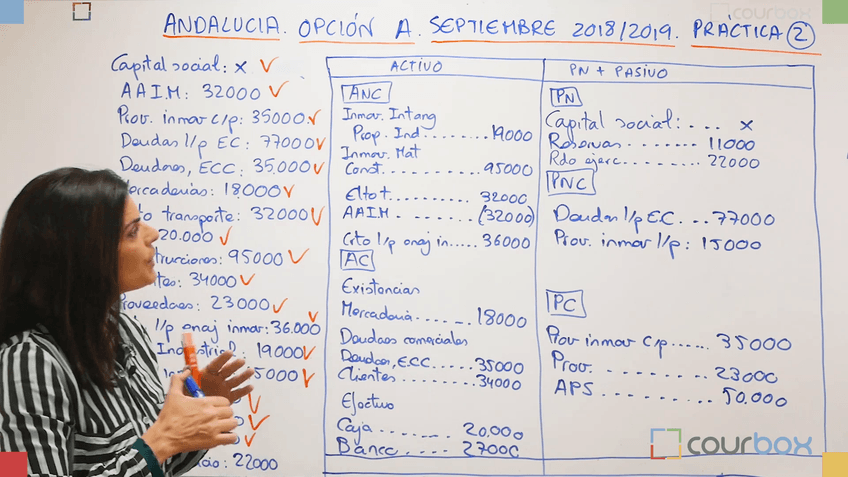 ANDALUCIA. OPCIÓN A. SEPTIEMBRE 2018/2019. PRÁCTICA 2
Capital social: x ✓
AAIM: 32000 ✓
Prov. inmov c/p: 35000 ✓
Deudas l/p EC: 77000 ✓
Deudores, ECC: 35.000 ✓
Mercaderías: 18.000 ✓
transporte: 32000 ✓
20.000 ✓
trucciones: 95000 ✓
34000 ✓
Proveedores: 23000 ✓
l/p enaj inmov: 36.000 ✓
Industrial: 19000 ✓
5000 ✓
✓
✓
✓
22000
ACTIVO
ANC
Inmov. Intang
Prop. Ind........ 19000
Inmov. Mat
Const.......... 95000
Elto t.......... 32000
AAIM........ (32000)
Crto l/p enaj in..... 36000
AC
Existencias
Mercadería....... 18000
Deudores comerciales
Deudores, ECC...... 35000
Clientes.......... 34000
Efectivo
Caja.......... 20.000
Banco......... 27000
PN + PASIVO
PN
Capital social: .... x
Reservas....... 11000
Rdo ejerc........ 22000
PNC
Deudas l/p E.C. ... 77000
Prov. inmov l/p: 15000
PC
Prov inmov c/p...... 35000
Prov........... 23000
APS........... 50.000
courbox
courbox